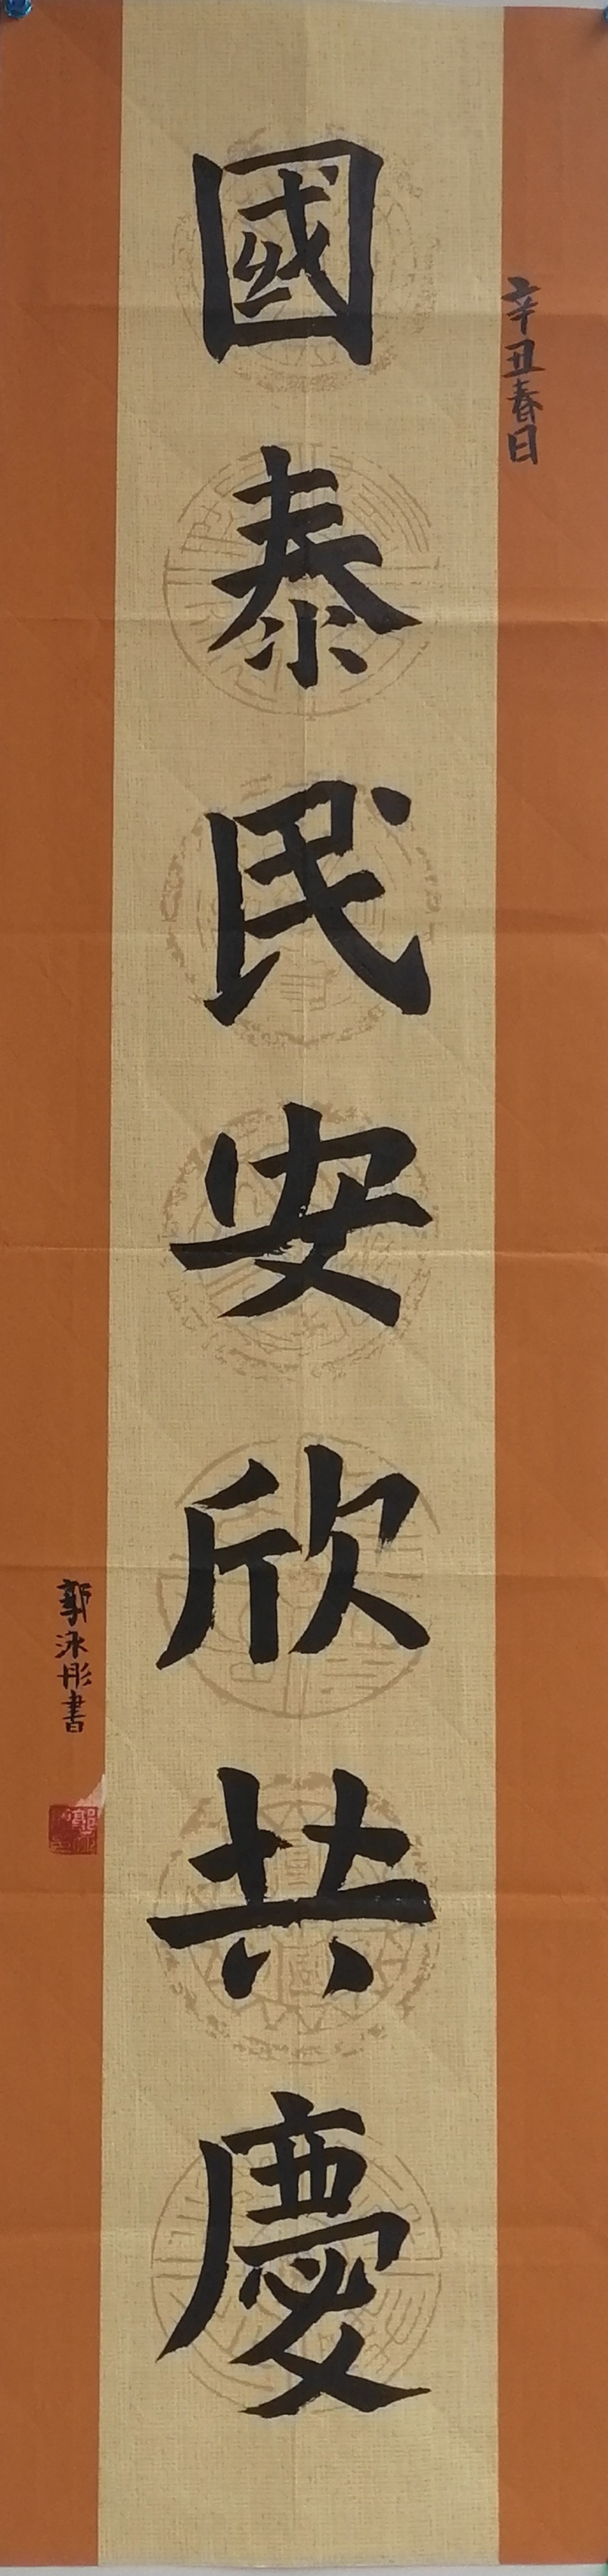 辛丑春日
國泰民安欣共慶
郭泳彤書